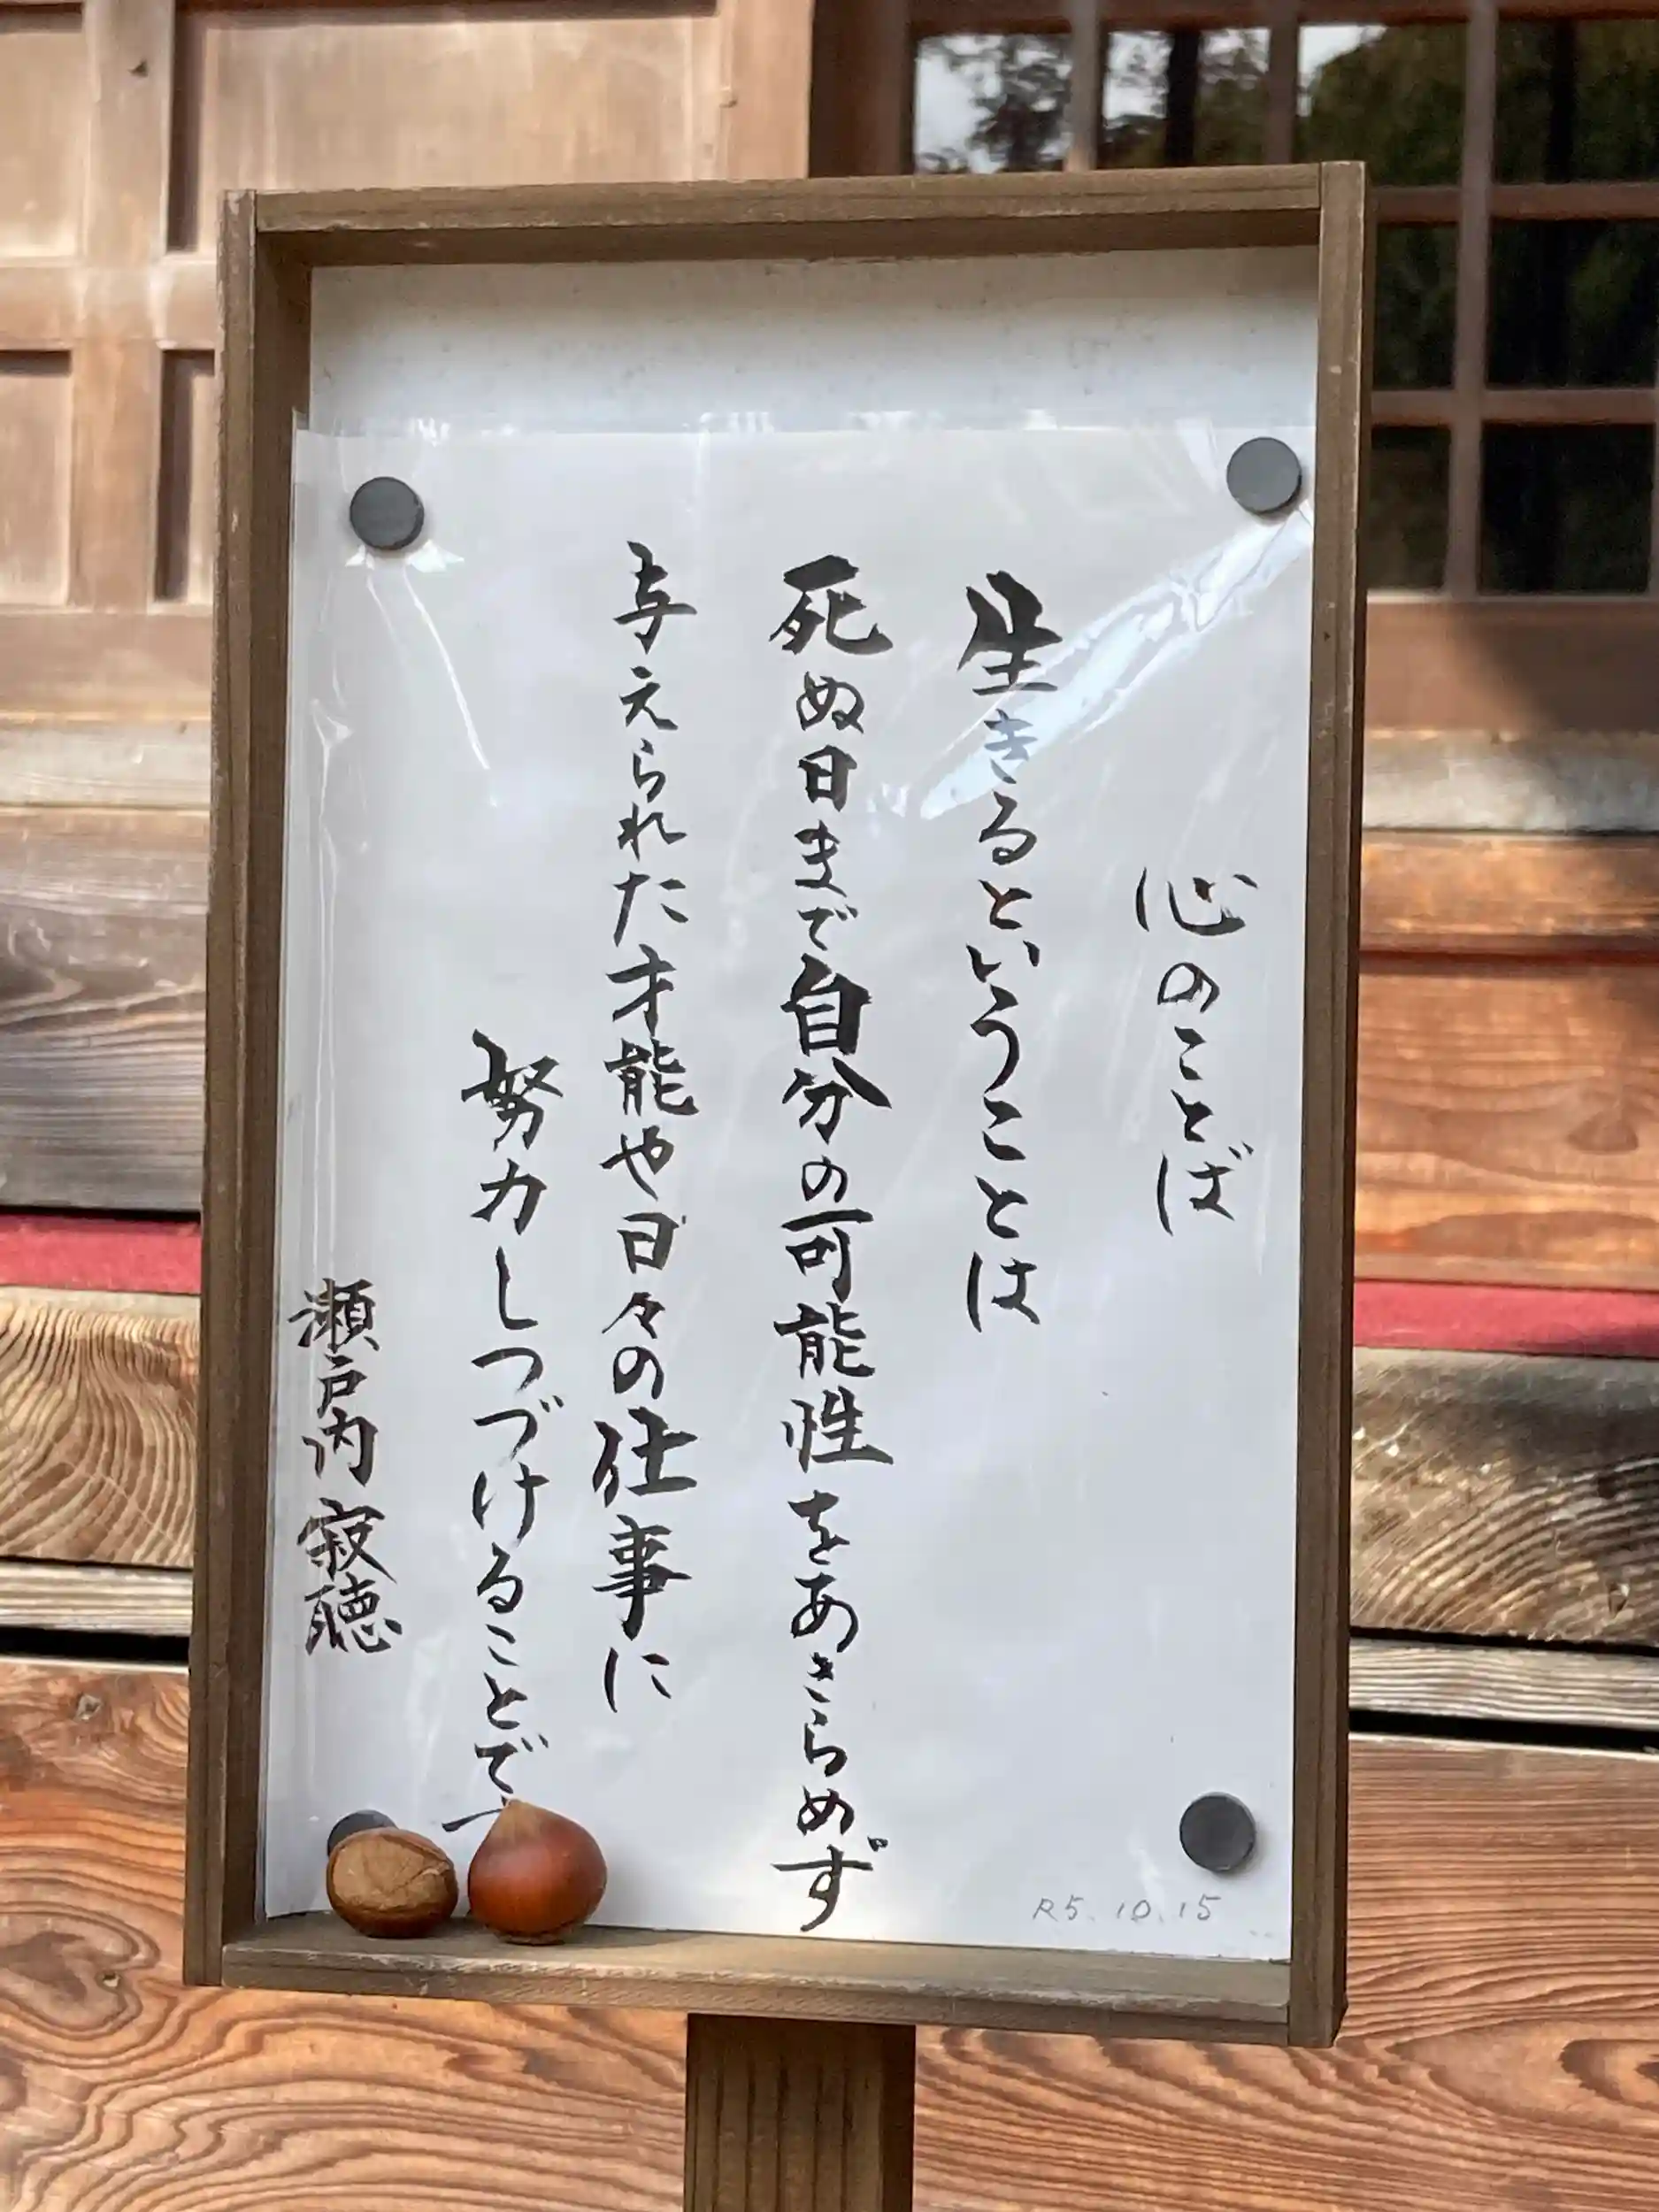 心のことば
生きるということは
死ぬ日まで自分の可能性をあきらめず
与えられた才能や日々の仕事に
努力しつづけることで
瀬戸内寂聴
R5.10.15